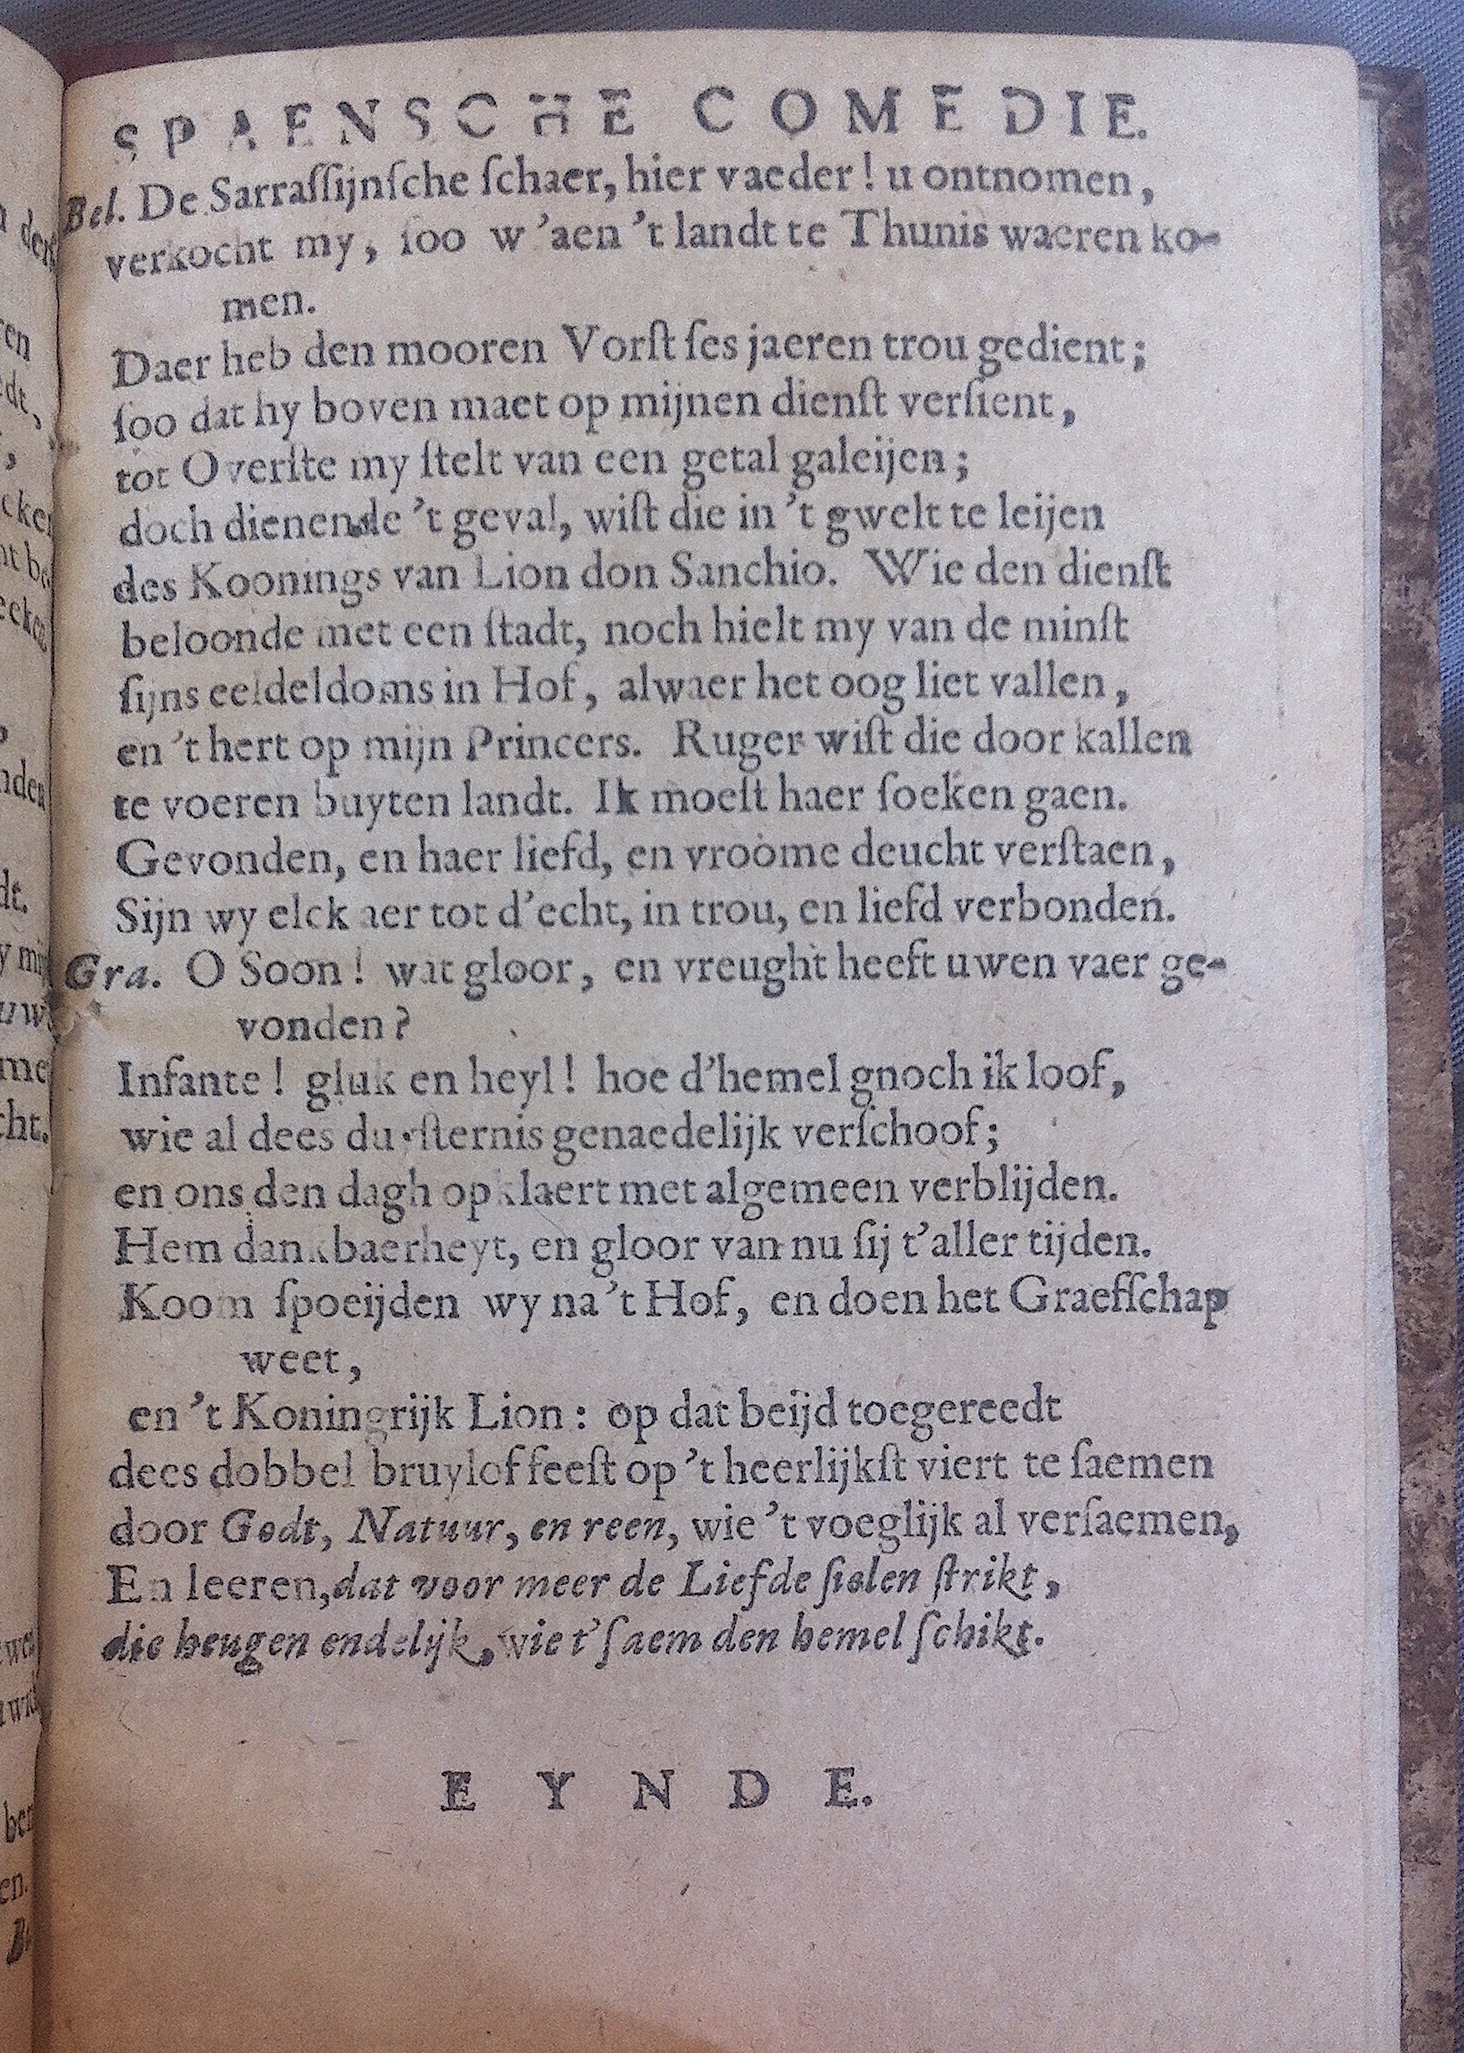 SPAENSCHE COMEDIE.
Bel. De Sarraſſijnſche ſchaer, hier vaeder! u ontnomen,
verkocht my, ſoo w'aen 't landt te Thunis waeren ko-
men.
Daer heb den mooren Vorſt ſes jaeren trou gedient;
ſoo dat hy boven maet op mijnen dienſt verſient,
tot Overſte my ſtelt van een getal galeijen;
doch dienende 't geval, wiſt die in 't gwelt te leijen
des Koonings van Lion don Sanchio. Wie den dienſt
beloonde met een ſtadt, noch hielt my van de minſt
ſijns eeldeldoms in Hof, alwaer het oog liet vallen,
en 't hert op mijn Princers. Ruger wiſt die door kallen
te voeren buyten landt. Ik moeſt haer ſoeken gaen.
Gevonden, en haer liefd, en vroome deucht verſtaen,
Sijn wy elck aer tot d'echt, in trou, en liefd verbonden.
Gra. O Soon! wat gloor, en vreught heeft uwen vaer ge-
vonden?
Infante! gluk en heyl! hoe d'hemel gnoch ik loof,
wie al dees duyſternis genaedelijk verſchoof;
en ons den dagh opklaert met algemeen verblijden.
Hem dankbaerheyt, en gloor van nu ſij t'aller tijden.
Koom ſpoeijden wy na 't Hof, en doen het Graefſchap
weet,
en 't Koningrijk Lion: op dat beijd toegereedt
dees dobbel bruylof feeſt op 't heerlijkſt viert te ſaemen
door Godt, Natuur, en reen, wie 't voeglijk al verſaemen,
En leeren, dat voor meer de Liefde ſiolen ſtrikt,
die heugen endelijk, wie t'ſaem den hemel ſchikt.
EYNDE.